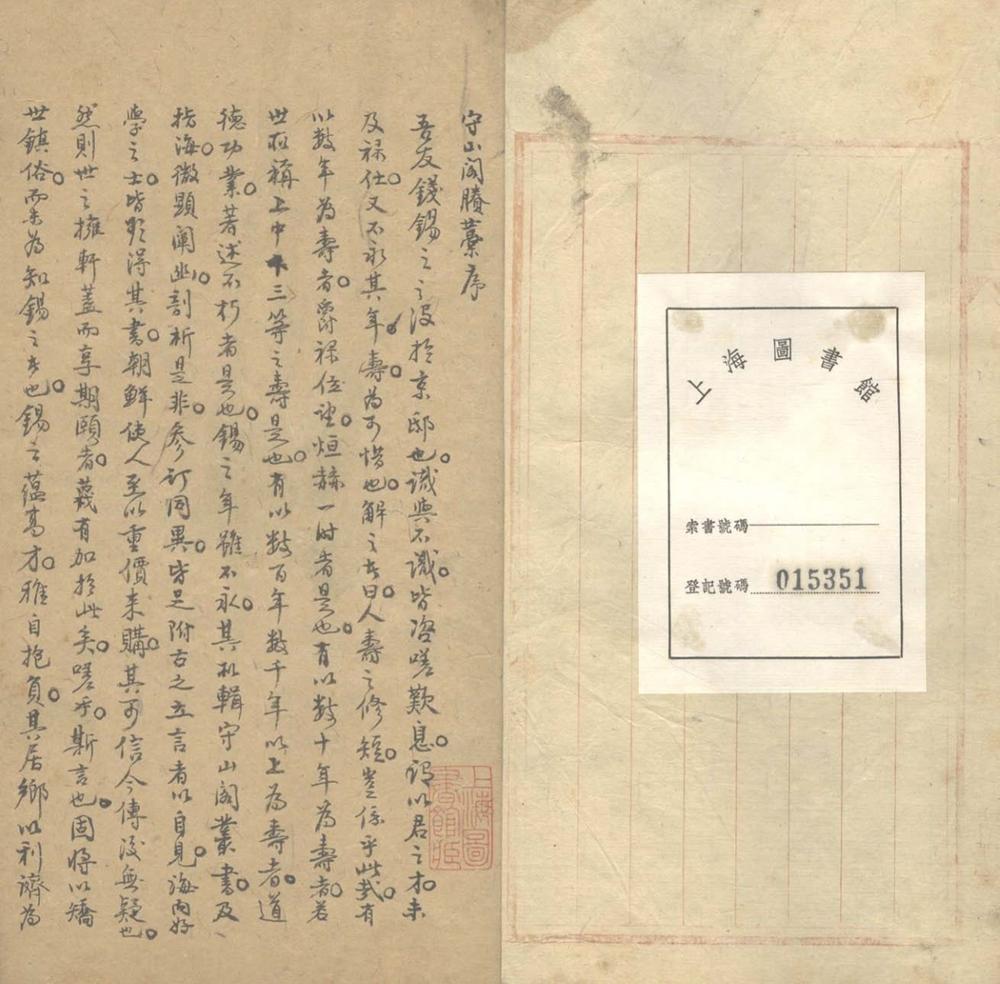 上海圖書館
索書號碼
登記號碼 015351
守山閣賸藁序
吾友錢錫之之沒於京邸也。識與不識。皆咨嗟歎息。謂以君之才。未
及祿仕。又不永其年壽。為可惜也。解之者曰。人壽之修短。豈係乎此哉。有
以數年為壽者。爵祿位望。烜赫一時者是也。有以數十年為壽者。若
世所稱上中下三等之壽是也。有以數百年數千年以上為壽者。道
德功業。著述不朽者是也。錫之年雖不永。其所輯守山閣叢書。及
指海。微顯闡幽。剖析是非。參訂同異。皆足附古之立言者以自見。海內好
學之士。皆願得其書。朝鮮使人至以重價來購。其可信今傳後無疑也。
然則世之擁軒蓋而享期頤者。蔑有加於此矣。嗟乎。斯言也。固將以矯
世鎮俗。而未為知錫之者也。錫之蘊高才。雅自抱負。其居鄉以利濟為
上海圖書館藏